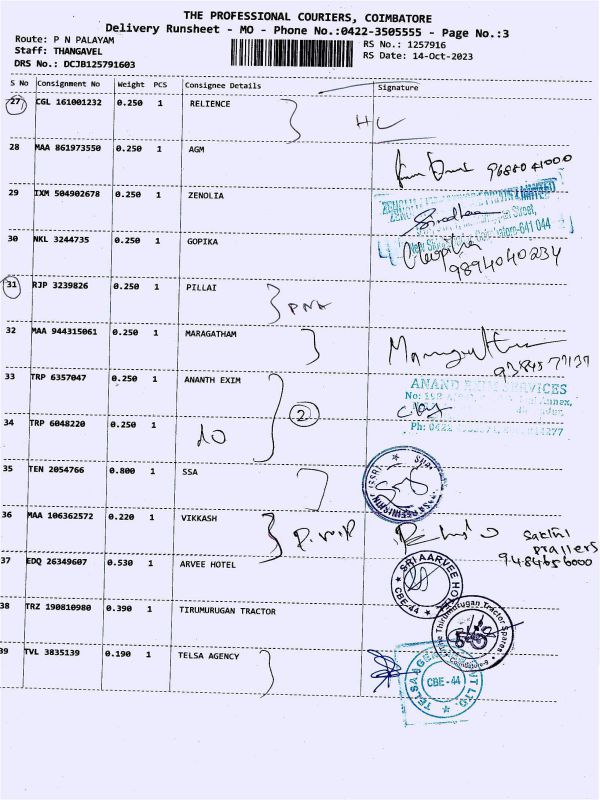 THE PROFESSIONAL COURIERS, COIMBATORE
Delivery Runsheet - MO - Phone No.:0422-3505555 - Page No.:3
Route: P N PALAYAM
Staff: THANGAVEL
DRS No.: DCJB125791603
RS No.: 1257916
RS Date: 14-Oct-2023
S No Consignment No Weight PCS Consignee Details Signature
27 CGL 161001232 0.250 1 RELIENCE
HL
28 MAA 861973550 0.250 1 AGM
29 IXM 504902678 0.250 1 ZENOLIA
30 NKL 3244735 0.250 1 GOPIKA
Gopika
9894040234
31 RJP 3239826 0.250 1 PILLAI
PNR
32 MAA 944315061 0.250 1 MARAGATHAM
33 TRP 6357047 0.250 1 ANANTH EXIM
ANAND EXIM SERVICES
2
34 TRP 6048220 0.250 1 do
35 TEN 2054766 0.800 1 SSA
36 MAA 106362572 0.220 1 VIKKASH
9484656000
37 EDQ 26349607 0.530 1 ARVEE HOTEL
SRI AARVEE HOTEL
CBE-44
38 TRZ 190810980 0.390 1 TIRUMURUGAN TRACTOR
Thirumurugan Tractor Spares
Coimbatore-9
39 TVL 3835139 0.190 1 TELSA AGENCY
CBE - 44